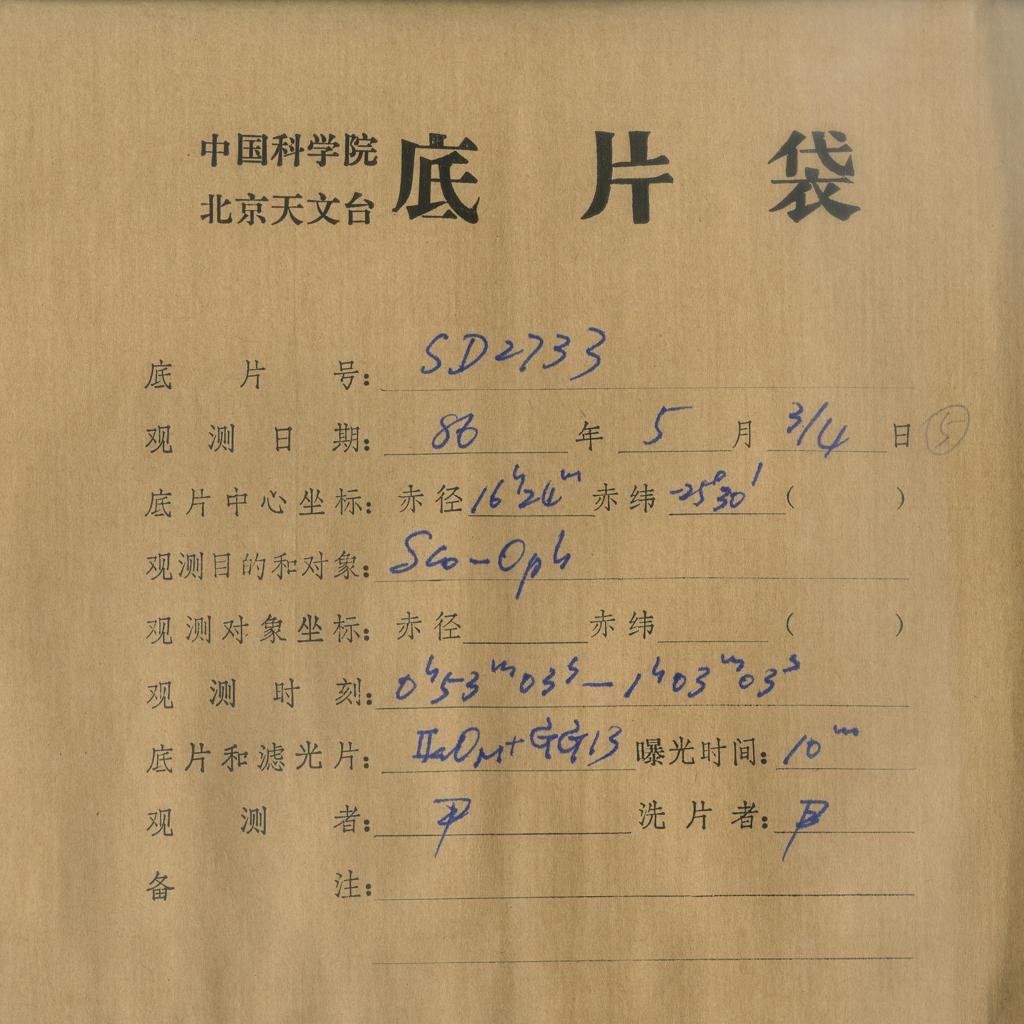 中国科学院
北京天文台
底片袋
底片号: SD2733
观测日期: 86 年 5 月 3/4 日 ⑤
底片中心坐标: 赤径 16h24m 赤纬 -25°30′ ( )
观测目的和对象: Sco-Oph
观测对象坐标: 赤径 赤纬 ( )
观测时刻: 0h53m03s — 1h03m03s
底片和滤光片: IIaO + GG13 曝光时间: 10m
观测者: 洗片者:
备注: